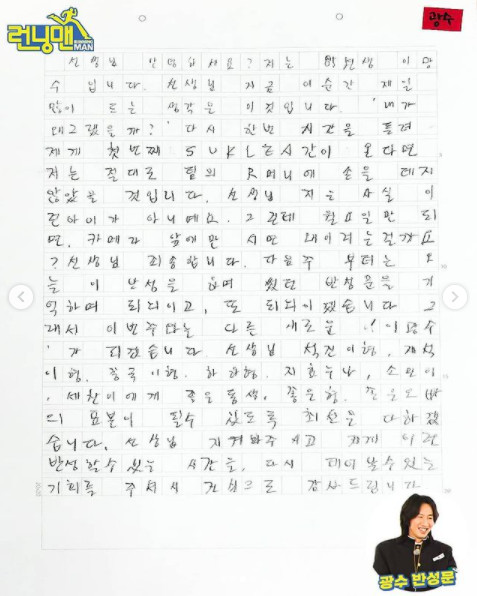 런닝맨
RUNNING MAN
광수
선생님 안녕하세요? 저는 학생 이광
수 입니다. 선생님 지금 이순간 제일
많이 드는 생각은 이것입니다. '내가
왜그랬을까?' 다시 한번 시간을 돌려
제게 첫번째 시간이 온다면
저는 절대로 팀의 R머니에 손을 대지
않았을 것입니다. 선생님 저는 사실 이
런아이가 아니에요. 그런데 월요일만 되
면, 카메라 앞에만 서면 왜이러는걸까요
? 선생님 죄송합니다. 다음주 부터는 오
늘 이 반성을 하며 썼던 반성문을 기
억하며 되뇌이고, 또 되뇌이겠습니다 그
래서 이번주와는 다른 새로운 '이광수
'가 되겠습니다. 선생님 석진이형, 재석
이형, 종국이형, 하하형, 지효누나, 소민이
, 세찬이에게 좋은동생, 좋은형, 좋은오빠
의 표본이 될수 있도록 최선을 다하겠
습니다. 선생님 지켜봐주시고 저에게 이런
반성할수 있는 시간을, 다시 태어날수있는
기회를 주셔서 진심으로 감사드립니다
광수 반성문